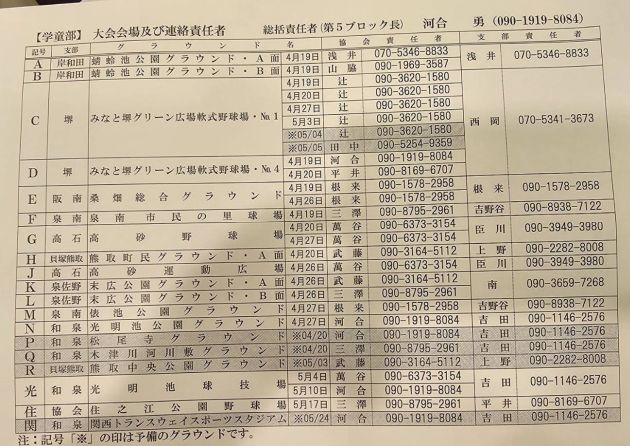 【学童部】 大会会場及び連絡責任者 総括責任者(第5ブロック長) 河合 勇(090-1919-8084)
記号 支部 グラウンド名 協会責任者 支部責任者
A 岸和田 蜻蛉池公園グラウンド・A面 4月19日 浅井 070-5346-8833 浅井 070-5346-8833
B 岸和田 蜻蛉池公園グラウンド・B面 4月19日 山脇 090-1969-3587
C 堺 みなと堺グリーン広場軟式野球場・No.1 4月19日 辻 090-3620-1580 西岡 070-5341-3673
4月20日 辻 090-3620-1580
4月27日 辻 090-3620-1580
5月3日 辻 090-3620-1580
※05/04 辻 090-3620-1580
※05/05 田中 090-5254-9359
D 堺 みなと堺グリーン広場軟式野球場・No.4 4月19日 河合 090-1919-8084
4月20日 平井 090-8169-6707
E 阪南 桑畑総合グラウンド 4月19日 根来 090-1578-2958 根来 090-1578-2958
4月26日 根来 090-1578-2958
F 泉南 泉南市民の里球場 4月19日 三澤 090-8795-2961 吉野谷 090-8938-7122
G 高石 高砂野球場 4月20日 萬谷 090-6373-3154 臣川 090-3949-3980
4月27日 萬谷 090-6373-3154
H 貝塚熊取 熊取町民グラウンド・A面 4月20日 武藤 090-3164-5112 上野 090-2282-8008
J 高石 高砂運動広場 4月26日 萬谷 090-6373-3154 臣川 090-3949-3980
K 泉佐野 末広公園グラウンド・A面 4月26日 武藤 090-3164-5112 南 090-3659-7268
L 泉佐野 末広公園グラウンド・B面 4月26日 三澤 090-8795-2961
M 泉南 俵池公園グラウンド 4月27日 根来 090-1578-2958 吉野谷 090-8938-7122
N 和泉 光明池公園グラウンド 4月27日 河合 090-1919-8084 吉田 090-1146-2576
P 和泉 松尾寺グラウンド ※04/20 河合 090-1919-8084 吉田 090-1146-2576
Q 和泉 木津川河川敷グラウンド ※04/20 三澤 090-8795-2961 吉田 090-1146-2576
R 貝塚熊取 熊取中央公園グラウンド ※05/03 武藤 090-3164-5112 上野 090-2282-8008
光 和泉 光明池球技場 5月4日 萬谷 090-6373-3154 吉田 090-1146-2576
5月10日 河合 090-1919-8084
住 協会 住之江公園野球場 5月17日 三澤 090-8795-2961 平井 090-8169-6707
関 和泉 関西トランスウェイスポーツスタジアム ※05/24 河合 090-1919-8084 吉田 090-1146-2576
注:記号「※」の印は予備のグラウンドです。